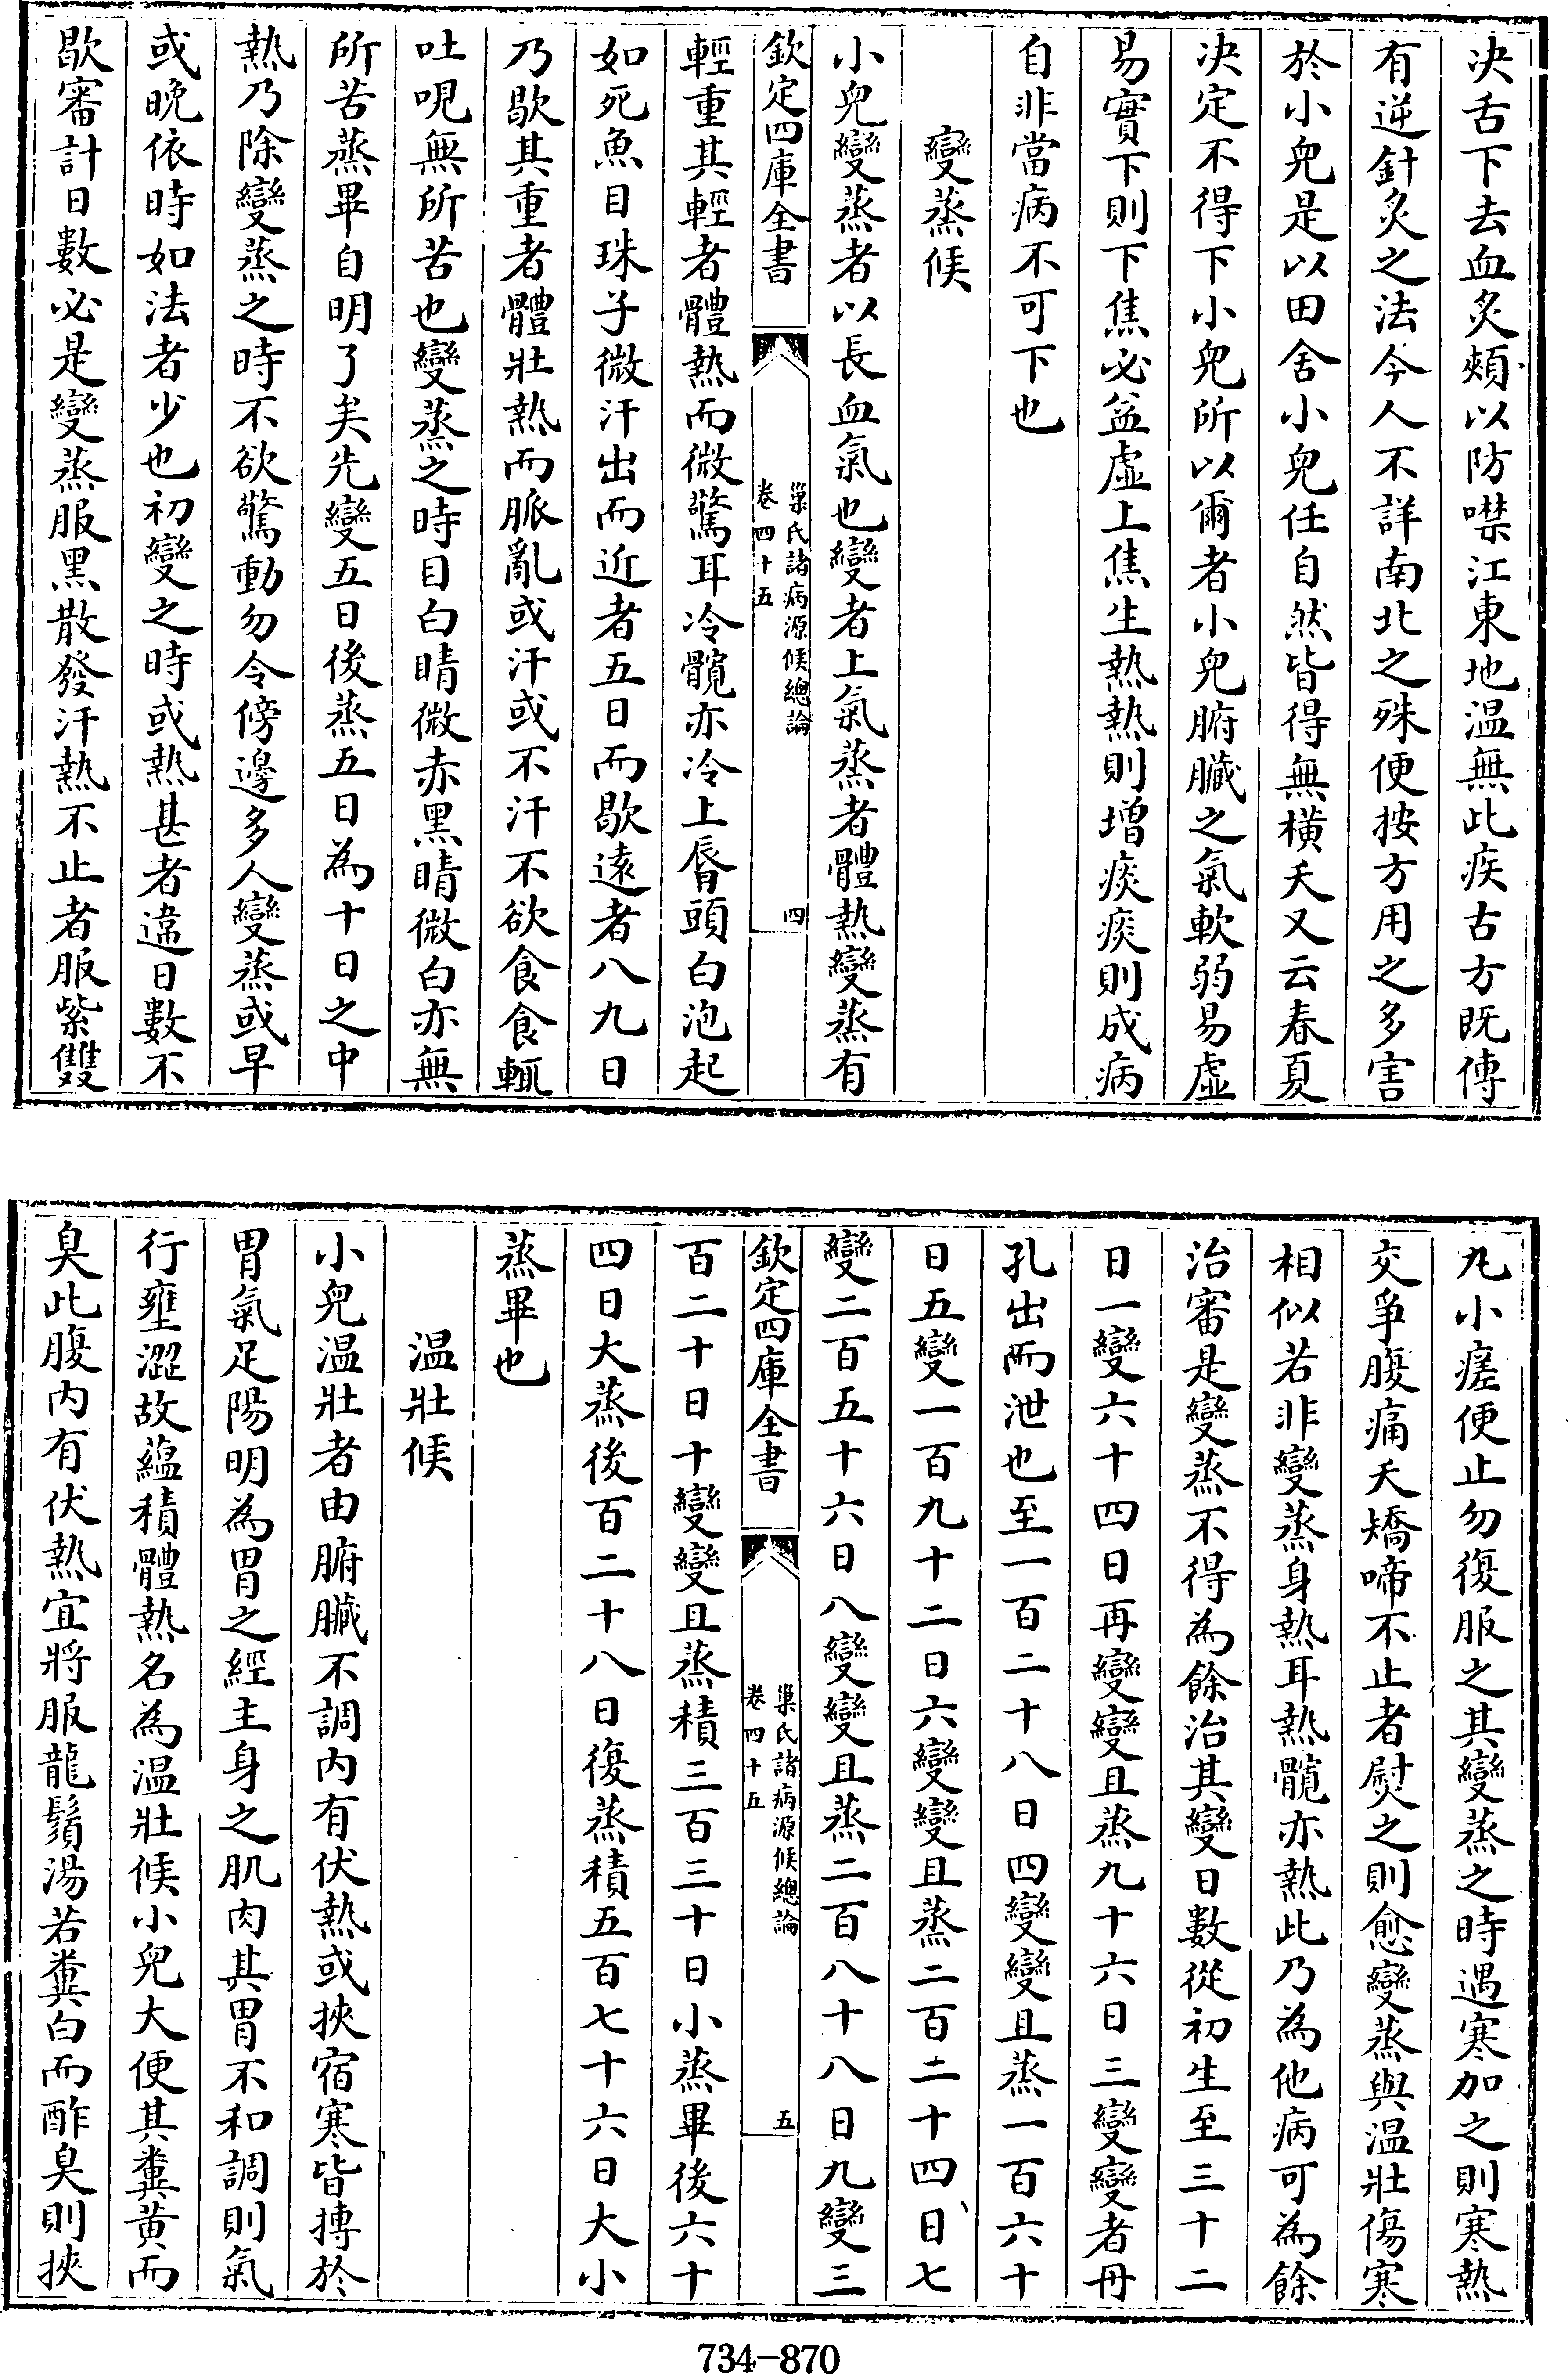 决舌下去血灸頰以防噤江東地温無此疾古方既傳
有逆針灸之法今人不詳南北之殊便按方用之多害
於小兒是以田舍小兒任自然皆得無横夭又云春夏
决定不得下小兒所以爾者小兒腑臓之氣軟弱易虛
易實下則下焦必益虛上焦生熱熱則增痰痰則成病
自非當病不可下也
變蒸候
小兒變蒸者以長血氣也變者上氣蒸者體熱變蒸有
欽定四庫全書
巢氏諸病源候總論
卷四十五
四
輕重其輕者體熱而微驚耳冷髖亦冷上唇頭白泡起
如死魚目珠子微汗出而近者五日而歇遠者八九日
乃歇其重者體壯熱而脈亂或汗或不汗不欲食食輒
吐哯無所苦也變蒸之時目白睛微赤黑睛微白亦無
所苦蒸畢自明了矣先變五日後蒸五日為十日之中
熱乃除變蒸之時不欲驚動勿令傍邊多人變蒸或早
或晚依時如法者少也初變之時或熱甚者違日數不
歇審計日數必是變蒸服黑散發汗熱不止者服紫雙
丸小瘥便止勿復服之其變蒸之時遇寒加之則寒熱
交爭腹痛夭矯啼不止者熨之則愈變蒸與温壯傷寒
相似若非變蒸身熱耳熱髖亦熱此乃為他病可為餘
治審是變蒸不得為餘治其變日數從初生至三十二
日一變六十四日再變變且蒸九十六日三變變者丹
孔出而泄也至一百二十八日四變變且蒸一百六十
日五變一百九十二日六變變且蒸二百二十四日七
變二百五十六日八變變且蒸二百八十八日九變三
欽定四庫全書
巢氏諸病源候總論
卷四十五
五
百二十日十變變且蒸積三百三十日小蒸畢後六十
四日大蒸後百二十八日復蒸積五百七十六日大小
蒸畢也
温壯候
小兒温壯者由腑臓不調内有伏熱或挾宿寒皆搏於
胃氣足陽明為胃之經主身之肌肉其胃不和調則氣
行壅澀故藴積體熱名為温壯候小兒大便其糞黄而
臭此腹内有伏熱宜將服龍鬚湯若糞白而酢臭則挾
734-870